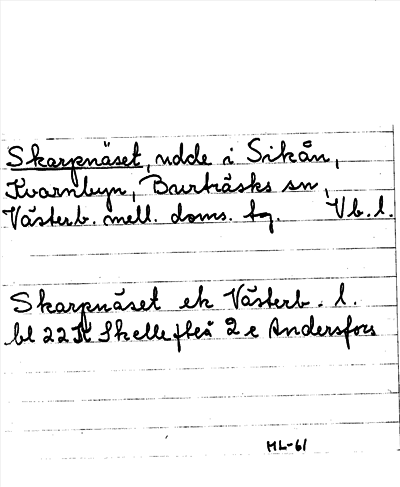 Skarpnäset, udde i Sikån,
Kvarnbyn, Burträsks sn,
Västerb. mell. doms. tg. Vb. l.
Skarpnäset ek Västerb. l.
bl 22K Skellefteå 2 e Andersfors
ML-61